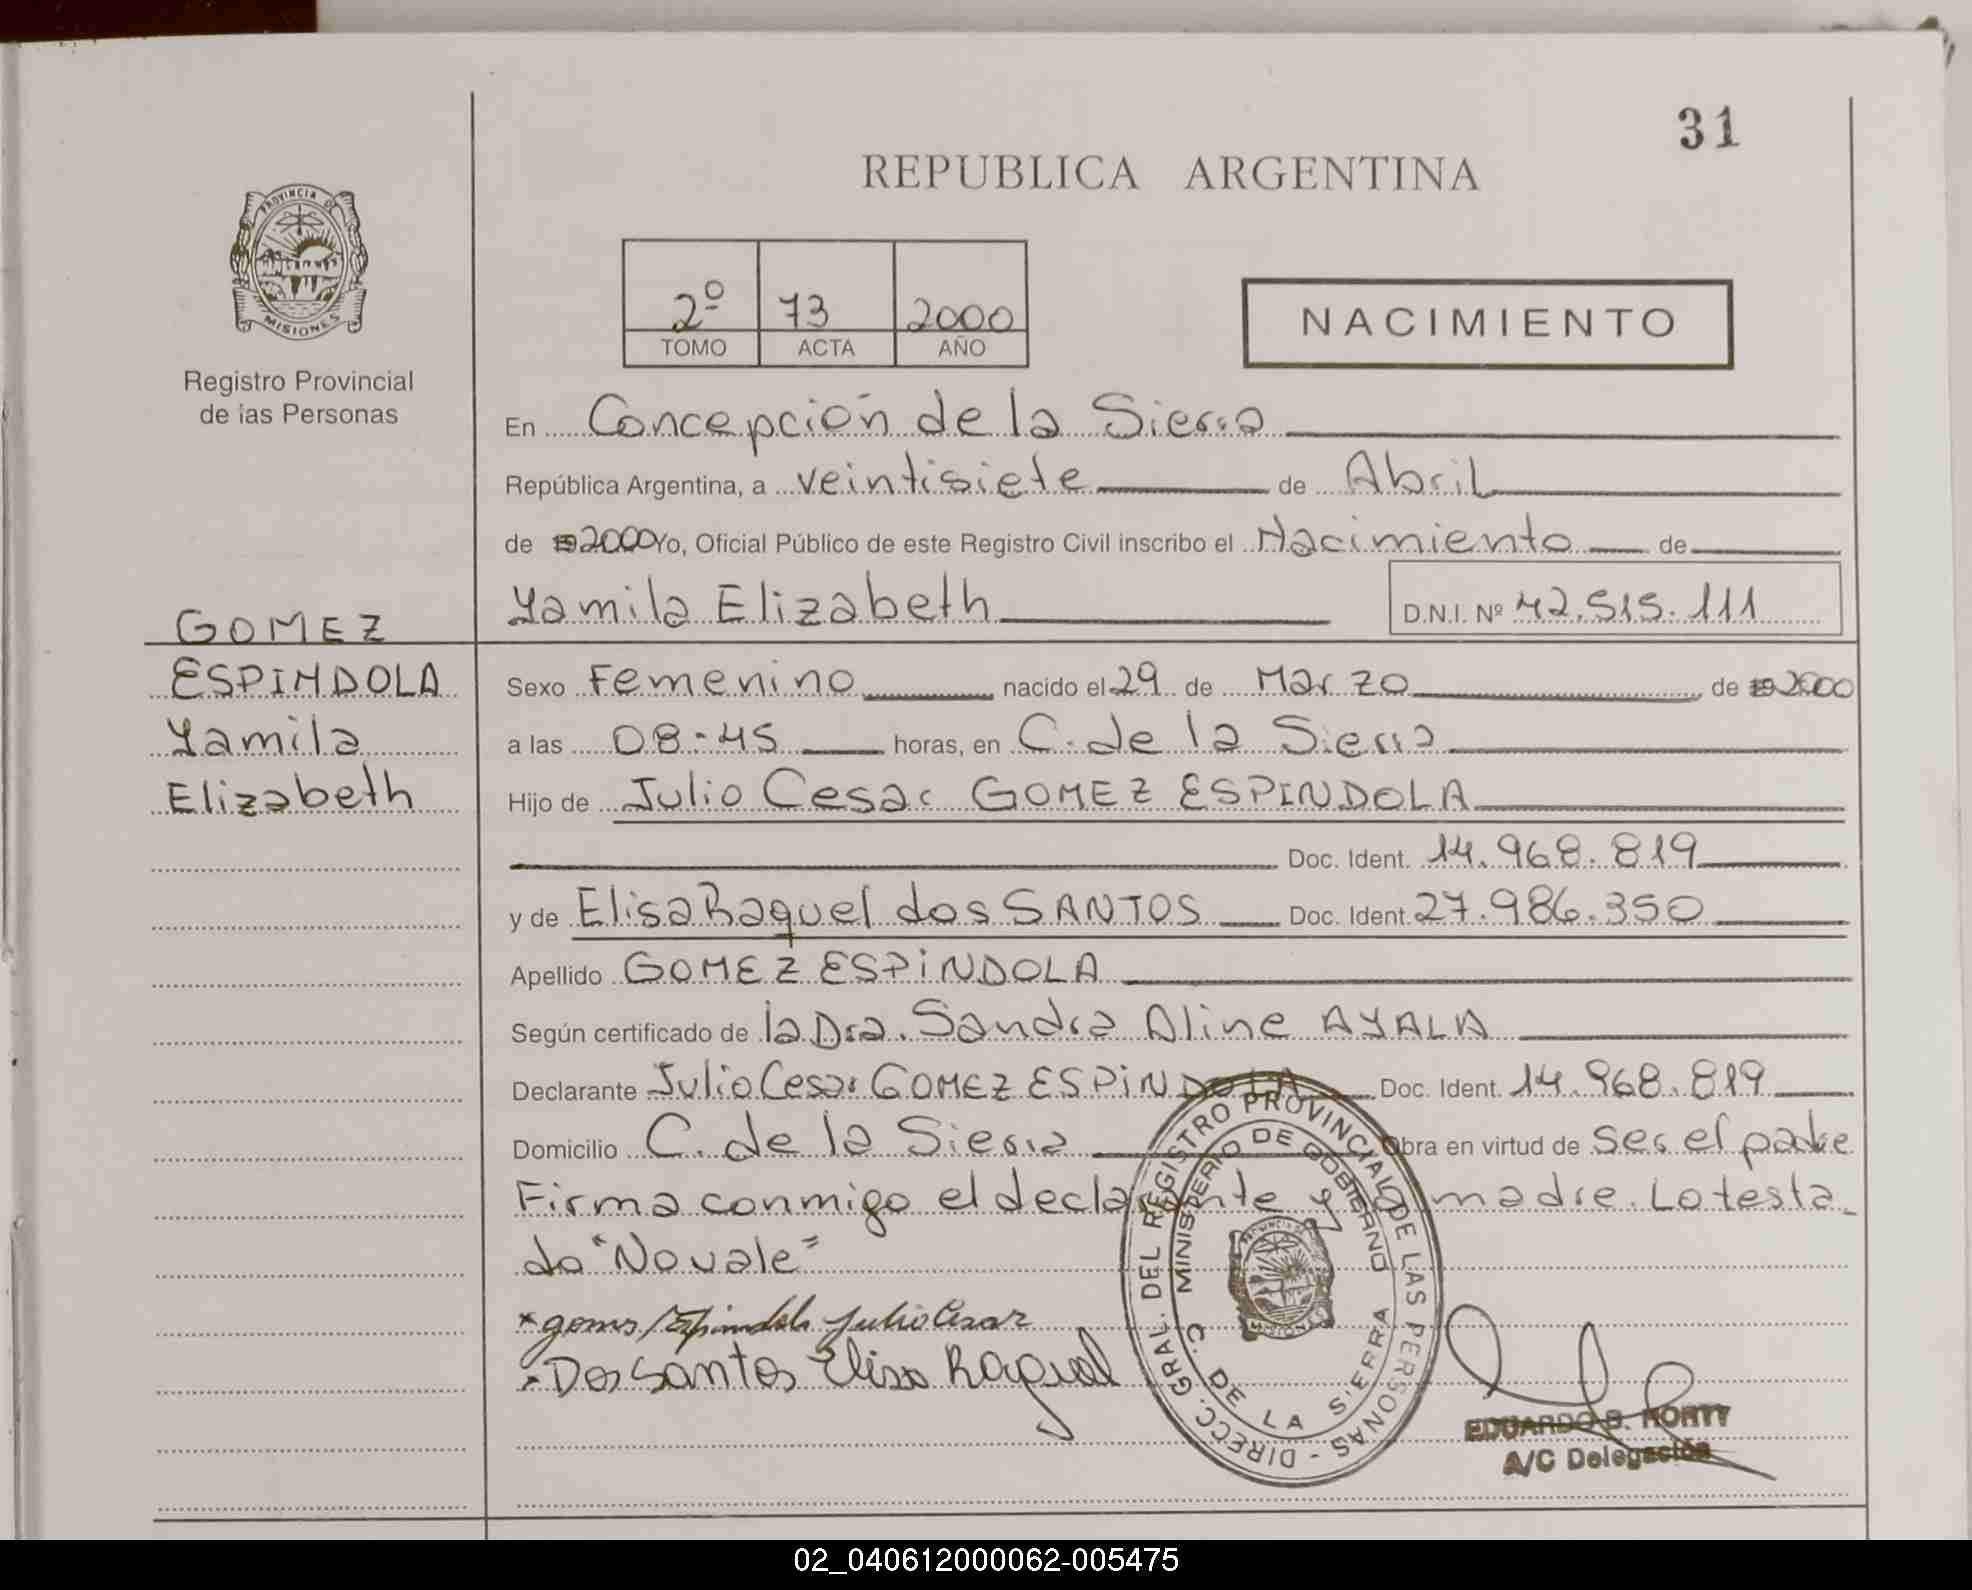 31
REPUBLICA ARGENTINA
PROVINCIA DE
MISIONES
Registro Provincial
de las Personas
2º 73 2000
TOMO ACTA AÑO
NACIMIENTO
En Concepción de la Sierra
República Argentina, a veintisiete de Abril
de 19 2000 Yo, Oficial Público de este Registro Civil inscribo el Nacimiento de
Yamila Elizabeth D.N.I. Nº 42.515.111
GOMEZ
ESPINDOLA
Yamila
Elizabeth
Sexo Femenino nacido el 29 de Marzo de 19 2000
a las 08-45 horas, en C. de la Sierra
Hijo de Julio Cesar GOMEZ ESPINDOLA
Doc. Ident. 14.968.819
y de Elisa Raquel dos SANTOS Doc. Ident. 27.986.350
Apellido GOMEZ ESPINDOLA
Según certificado de la Dra. Sandra Aline AYALA
Declarante Julio Cesar GOMEZ ESPINDOLA Doc. Ident. 14.968.819
Domicilio C. de la Sierra Obra en virtud de ser el padre
Firma conmigo el declarante y la madre. Lo testa_
do "No vale"
Espindola Julio Cesar
Dos Santos Elisa Raquel
DIRECC. GRAL. DEL REGISTRO PROVINCIAL DE LAS PERSONAS -
MINISTERIO DE GOBIERNO
C. DE LA SIERRA
EDUARDO B. HORTY
A/C Delegación
02_040612000062-005475